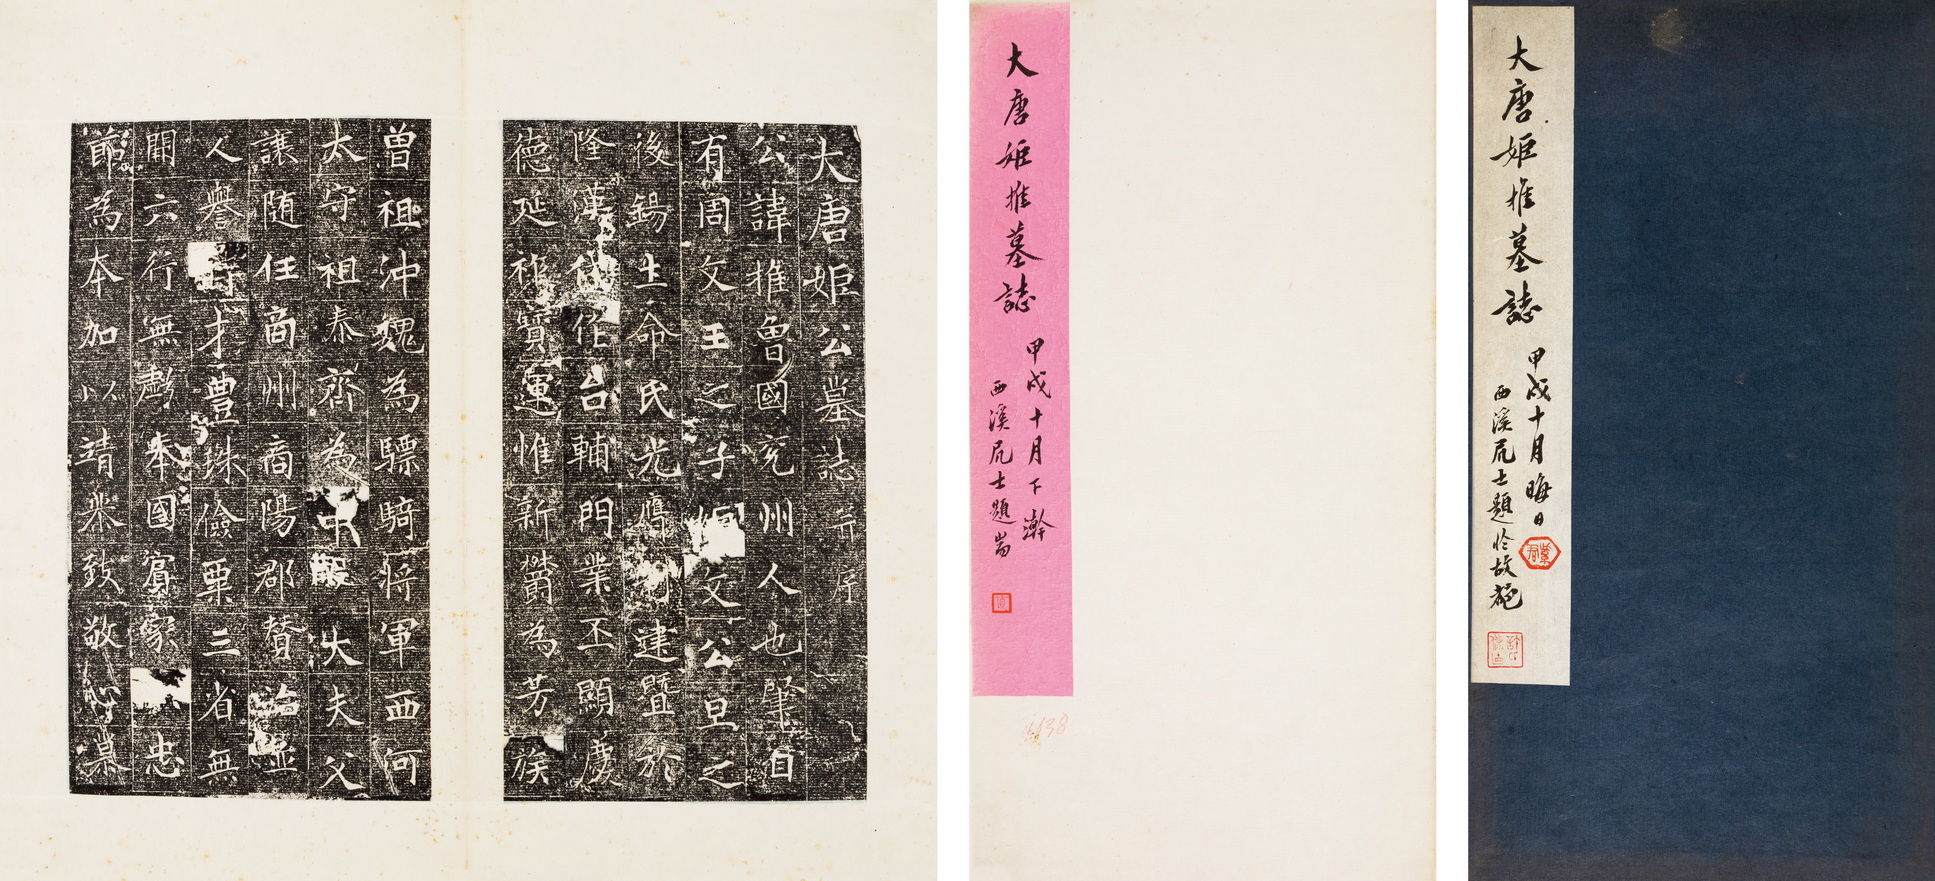 大唐姬公墓誌并序
公諱推魯國兖州人也肇自
有周文王之子 文公旦之
後錫生命氏光膺 建暨於
隆漢 作台輔門業丕顯慶
德延祚寶運惟新欝為芳族
曾祖沖魏為驃騎將軍西河
太守祖泰齊為中散大夫父
讓隨任商州商陽郡贊治並
人譽 才豊珠儉粟三省無
閒六行無虧奉國賓家 忠
節為本加以靖衆致敬 慕
大唐姬推墓誌
甲戌十月下澣
西溪凥士題耑
大唐姬推墓誌
甲戌十月晦日
西溪凥士題於故